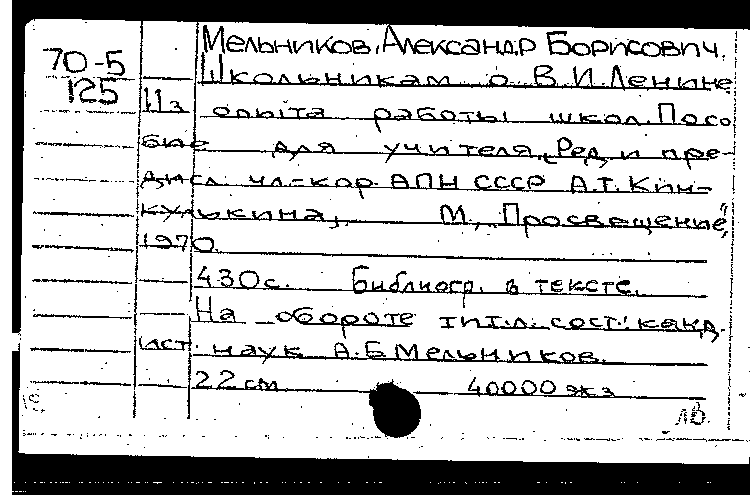 70-5
125
Мельников, Александр Борисович.
Школьникам о В.И.Ленине
Из опыта работы школ. Посо
бие для учителя. Ред. и пре-
дисл. чл-кор. АПН СССР А.Т. Кин-
кулькина, М., "Просвещение",
1970.
430с. Библиогр. в тексте.
На обороте тит.л. сост.: канд.
ист. наук А.Б Мельников.
22 см 40000 экз
лв.